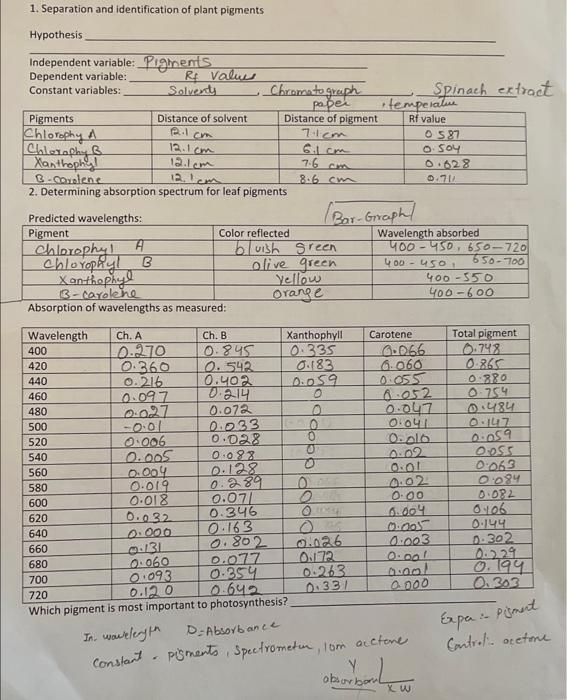 1. Separation and identification of plant pigments
Hypothesis
Independent variable: Pigments
Dependent variable: Rf value
Constant variables: Solvents, Chromatograph paper, temperature Spinach extract
Pigments Distance of solvent Distance of pigment Rf value
Chlorophy A 12.1 cm 7.1 cm 0.587
Chlorophy B 12.1 cm 6.1 cm 0.504
Xanthophyl 12.1 cm 7.6 cm 0.628
B-carolene 12.1 cm 8.6 cm 0.711
2. Determining absorption spectrum for leaf pigments
Bar-Graph
Predicted wavelengths:
Pigment Color reflected Wavelength absorbed
Chlorophyl A bluish green 400-450, 650-720
Chlorophyl B olive green 400-450, 650-700
Xanthophyl Yellow 400-550
B-carolene orange 400-600
Absorption of wavelengths as measured:
Wavelength Ch. A Ch. B Xanthophyll Carotene Total pigment
400 0.270 0.845 0.335 0.066 0.748
420 0.360 0.542 0.183 0.060 0.865
440 0.216 0.402 0.059 0.055 0.880
460 0.097 0.214 0 0.052 0.754
480 0.027 0.072 0 0.047 0.484
500 -0.01 0.033 0 0.041 0.147
520 0.006 0.028 0 0.010 0.059
540 0.005 0.083 0 0.02 0.055
560 0.004 0.128 0 0.01 0.063
580 0.019 0.289 0 0.02 0.084
600 0.018 0.071 0 0.00 0.082
620 0.032 0.346 0 0.004 0.106
640 0.000 0.163 0 0.005 0.144
660 0.131 0.802 0.026 0.003 0.302
680 0.060 0.077 0.172 0.001 0.229
700 0.093 0.354 0.263 0.001 0.194
720 0.120 0.642 0.331 0.000 0.303
Which pigment is most important to photosynthesis?
In. wavelength D=Absorbance Expe:- pigment
Constant - pigments, Spectrometer, 10m acetone Control:- acetone
Y
absorban
X W